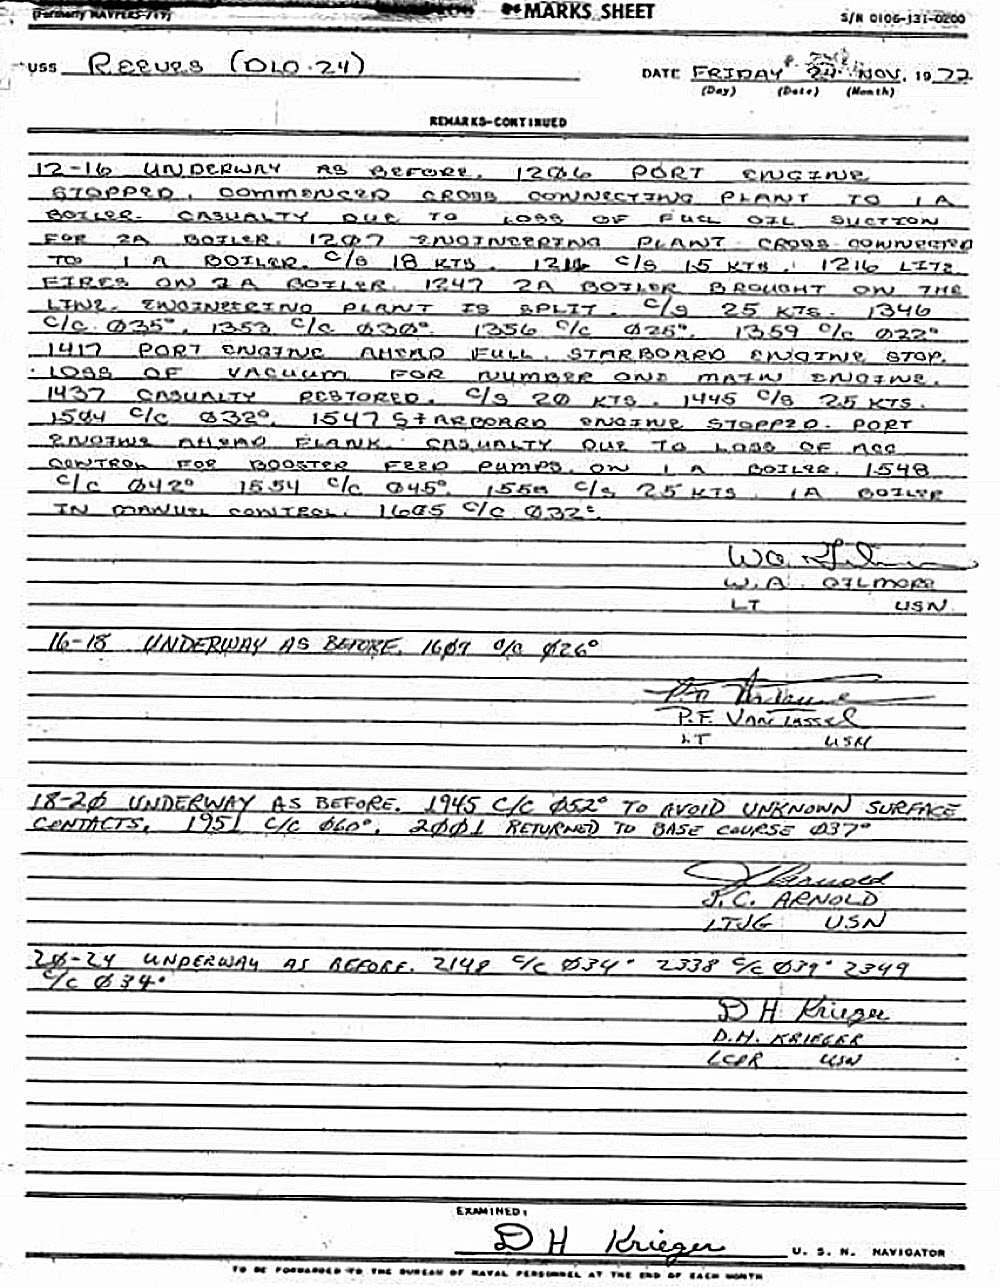 (Formerly NAVPERS-719)
MARKS SHEET
S/N 0106-131-0200
USS REEVES (DLG-24)
DATE FRIDAY 24 NOV. 1972
(Day) (Date) (Month)
REMARKS-CONTINUED
12-16 UNDERWAY AS BEFORE. 1206 PORT ENGINE
STOPPED. COMMENCED CROSS CONNECTING PLANT TO 1A
BOILER. CASUALTY DUE TO LOSS OF FUEL OIL SUCTION
FOR 2A BOILER. 1207 ENGINEERING PLANT CROSS CONNECTED
TO 1A BOILER. C/S 18 KTS. C/S 15 KTS. 1216 LITE
FIRES ON 2A BOILER. 1247 2A BOILER BROUGHT ON THE
LINE. ENGINEERING PLANT IS SPLIT. C/S 25 KTS. 1346
C/C Ø35°. 1353 C/C Ø30°. 1356 C/C Ø25°. 1359 C/C Ø22°
1417 PORT ENGINE AHEAD FULL. STARBOARD ENGINE STOP.
LOSS OF VACUUM FOR NUMBER ONE MAIN ENGINE.
1437 CASUALTY RESTORED. C/S 20 KTS. 1445 C/S 25 KTS.
1504 C/C Ø32°. 1547 STARBOARD ENGINE STOPPED. PORT
ENGINE AHEAD FLANK. CASUALTY DUE TO LOSS OF ACC
CONTROL FOR BOOSTER FEED PUMPS ON 1A BOILER. 1548
C/C Ø42° 1554 C/C Ø45°. 1558 C/S 25 KTS. 1A BOILER
IN MANUEL CONTROL. 1605 C/C Ø32°.
W.A. GILMORE
LT USN
16-18 UNDERWAY AS BEFORE. 16Ø9 C/C Ø26°
P.F. VAN TASSEL
LT USN
18-2Ø UNDERWAY AS BEFORE. 1945 C/C Ø52° TO AVOID UNKNOWN SURFACE
CONTACTS. 1951 C/C Ø60°. 2ØØ1 RETURNED TO BASE COURSE Ø37°
J Arnold
J.C. ARNOLD
LTJG USN
2Ø-24 UNDERWAY AS BEFORE. 2148 C/C Ø34° 2338 C/C Ø39° 2349
C/C Ø34°
D H Krieger
D.H. KRIEGER
LCDR USN
EXAMINED:
D H Krieger U. S. N. NAVIGATOR
TO BE FORWARDED TO THE BUREAU OF NAVAL PERSONNEL AT THE END OF EACH MONTH